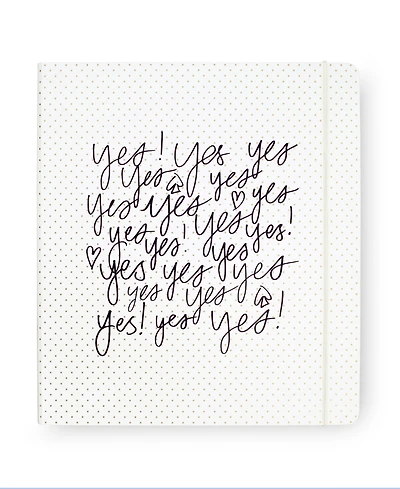 yes! yes yes
yes yes
yes yes yes
yes! yes yes!
yes. yes
yes yes yes
yes yes
yes! yes yes!